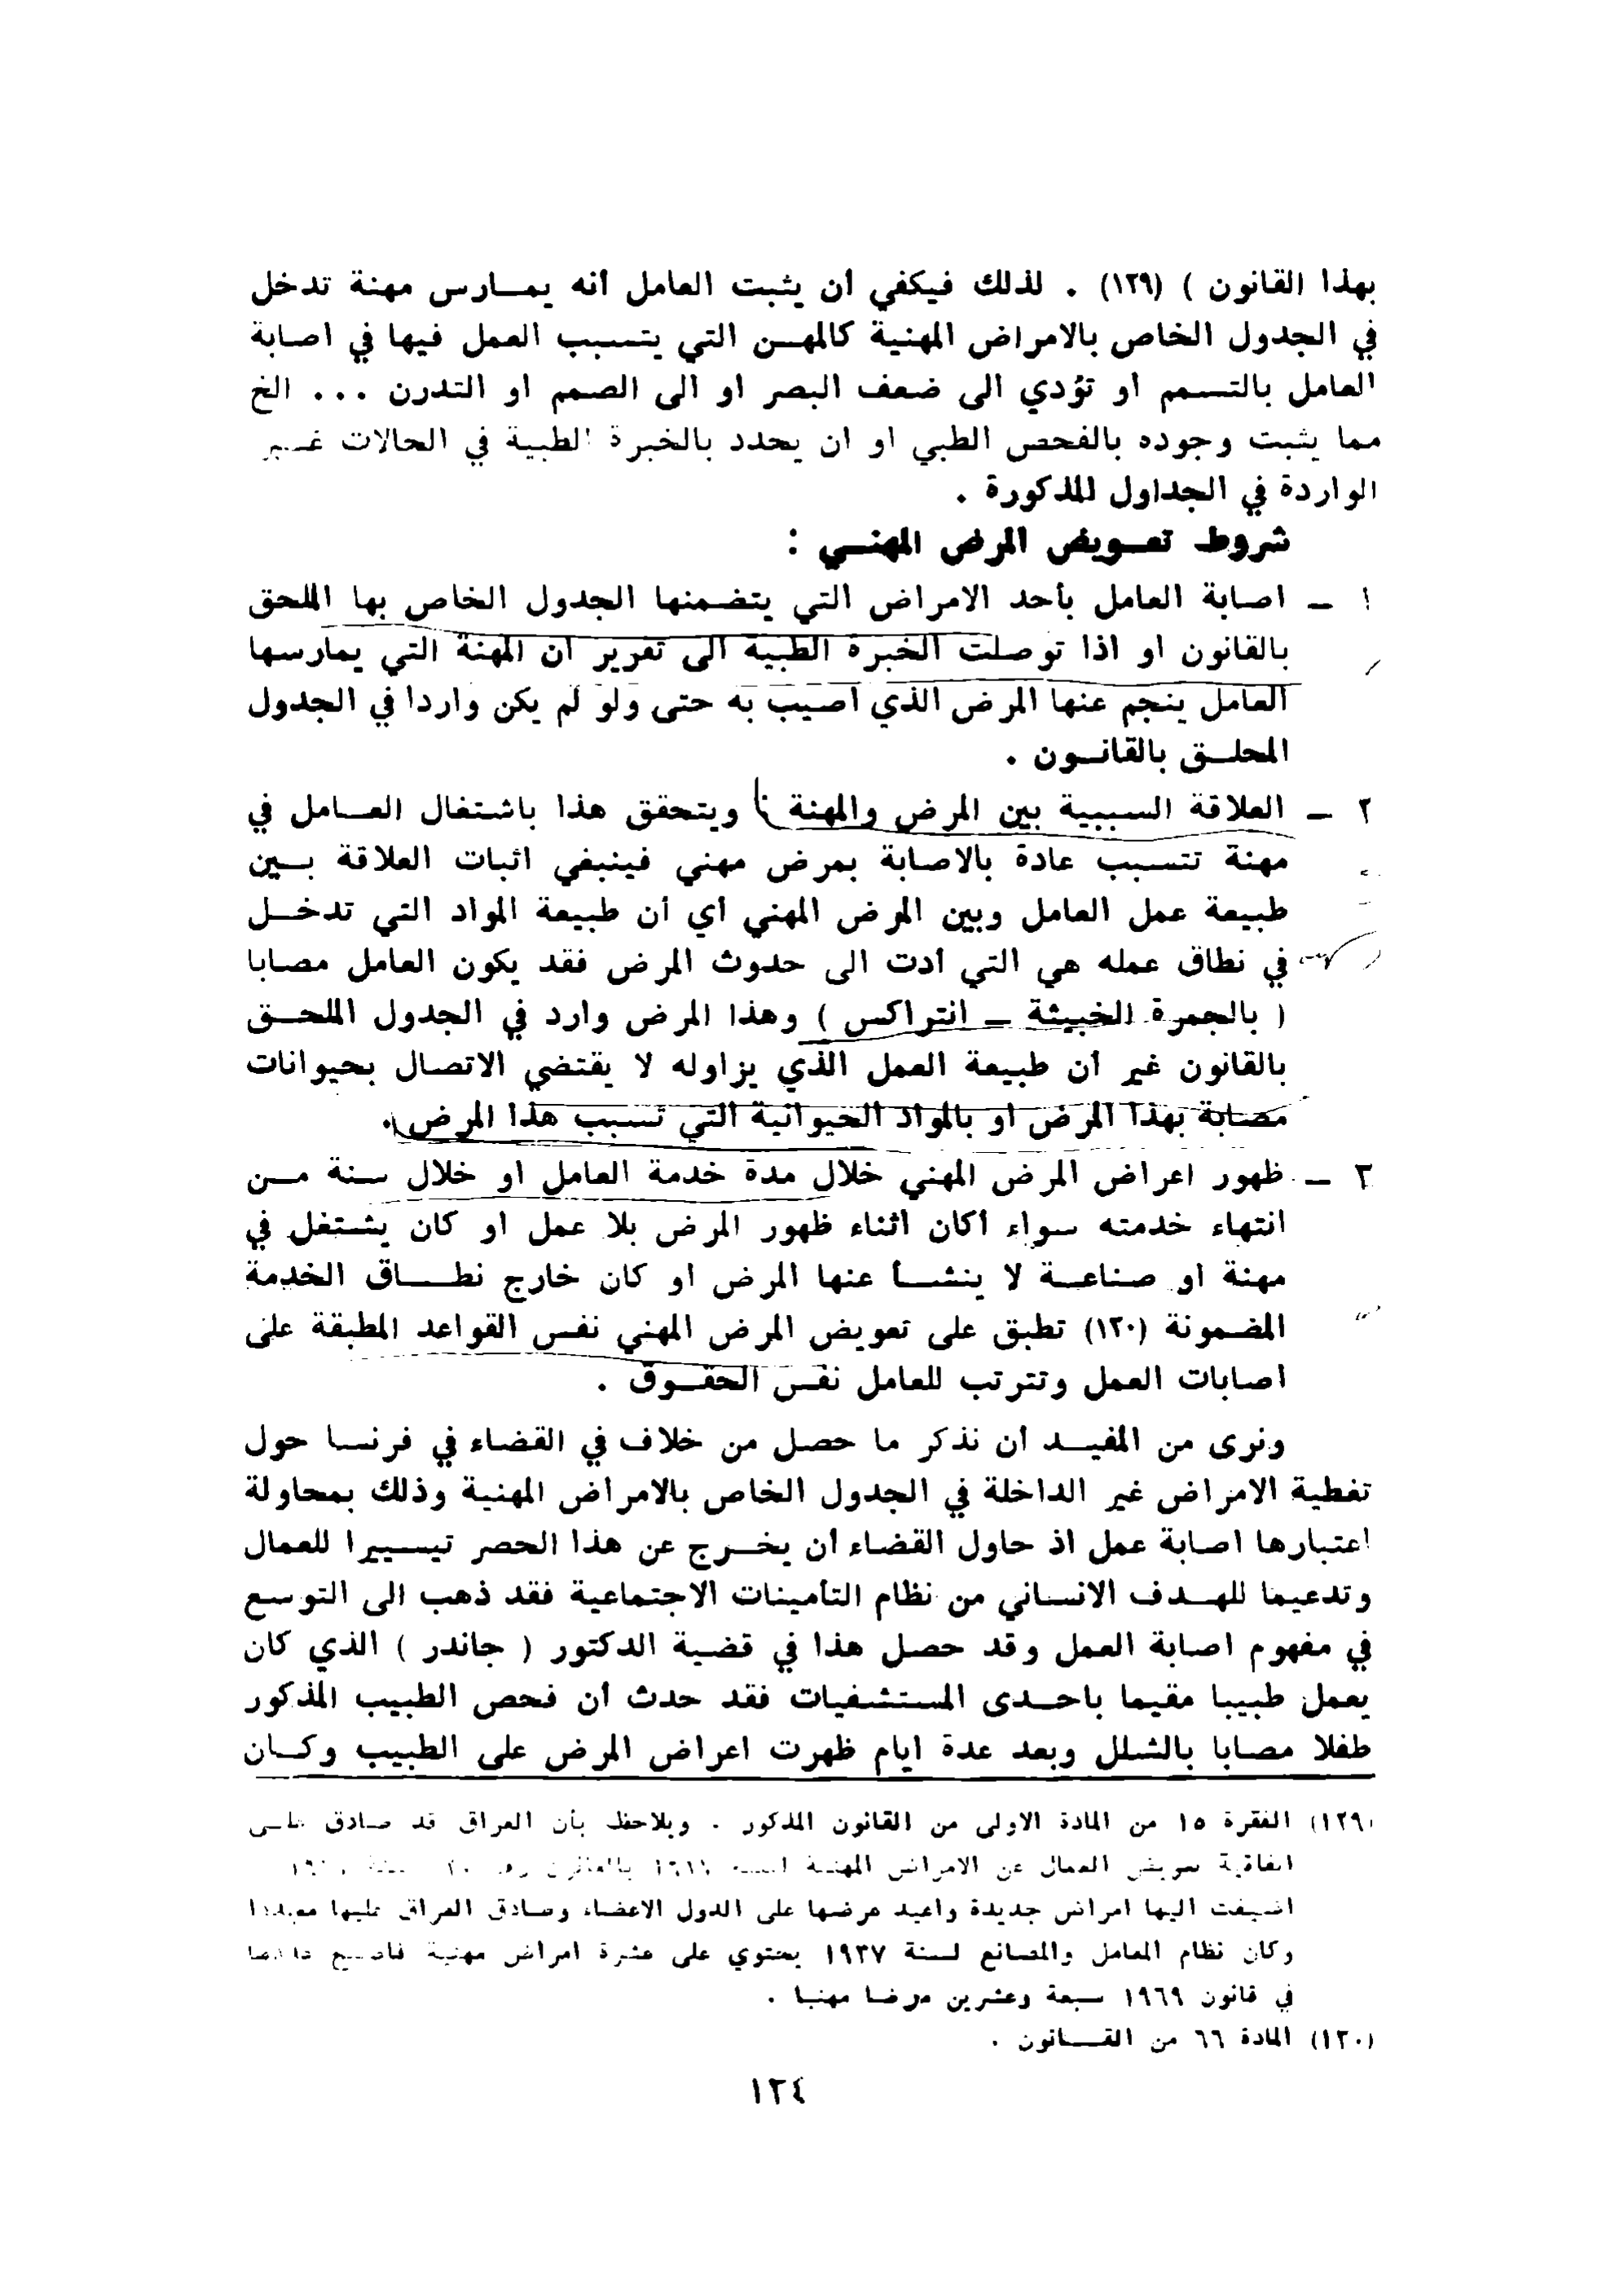 بهذا القانون ) (١٢٩) . لذلك فيكفي أن يثبت العامل أنه يمــارس مهنة تدخل
في الجدول الخاص بالامراض المهنية كالمهـن التي يتسبب العمل فيها في اصابة
العامل بالتسمم او تؤدي الى ضعف البصر او الى الصمم او التدرن ... الخ
مما يثبت وجوده بالفحص الطبي او ان يحدد بالخبرة الطبية في الحالات غـير
الواردة في الجداول المذكورة .
شروط تعـويض المرض المهنـي :
١ – اصابة العامل بأحد الامراض التي يتضمنها الجدول الخاص بها الملحق
بالقانون او اذا توصلت الخبرة الطبية الى تقرير ان المهنة التي يمارسها
العامل ينجم عنها المرض الذي اصيب به حتى ولو لم يكن واردا في الجدول
المحلـق بالقانـون .
٢ – العلاقة السببية بين المرض والمهنة : ويتحقق هذا باشتغال العـامل في
مهنة تتسبب عادة بالاصابة بمرض مهني فينبغي اثبات العلاقة بــين
طبيعة عمل العامل وبين المرض المهني أي أن طبيعة المواد التي تدخــل
في نطاق عمله هي التي أدت الى حدوث المرض فقد يكون العامل مصابا
( بالجمرة الخبيثة – انتراكس ) وهذا المرض وارد في الجدول الملحـق
بالقانون غير أن طبيعة العمل الذي يزاوله لا يقتضي الاتصال بحيوانات
مصابة بهذا المرض او بالمواد الحيوانية التي تسبب هذا المرض .
٣ – ظهور اعراض المرض المهني خلال مدة خدمة العامل او خلال سنة مــن
انتهاء خدمته سواء أكان اثناء ظهور المرض بلا عمل او كان يشتغل في
مهنة او صناعــة لا ينشــأ عنها المرض او كان خارج نطــاق الخدمة
المضمونة (١٣٠) تطبق على تعويض المرض المهني نفس القواعد المطبقة على
اصابات العمل وتترتب للعامل نفس الحقـوق .
ونرى من المفيــد أن نذكر ما حصل من خلاف في القضاء في فرنسا حول
تغطية الامراض غير الداخلة في الجدول الخاص بالامراض المهنية وذلك بمحاولة
اعتبارها اصابة عمل اذ حاول القضاء أن يخــرج عن هذا الحصر تيسييرا للعمال
وتدعيما للهـدف الانساني من نظام التأمينات الاجتماعية فقد ذهب الى التوسع
في مفهوم اصابة العمل وقد حصل هذا في قضية الدكتور ( جاندر ) الذي كان
يعمل طبيبا مقيما باحـدى المستشفيات فقد حدث أن فحص الطبيب المذكور
طفلا مصابا بالشلل وبعد عدة ايام ظهرت اعراض المرض على الطبيب وكــان
(١٢٩) الفقرة ١٥ من المادة الاولى من القانون المذكور . ويلاحظ بأن العراق قد صادق على
اتفاقية تعويض العمال عن الامراض المهنية
اضيفت اليها امراض جديدة واعيد عرضها على الدول الاعضاء وصادق العراق عليها مجددا
وكان نظام المعامل والمصانع لسنة ١٩٣٧ يحتوي على عشرة امراض مهنية
في قانون ١٩٦٩ سبعة وعشرين مرضا مهنيا .
(١٣٠) المادة ٦٦ من القــانون .
١٢٤